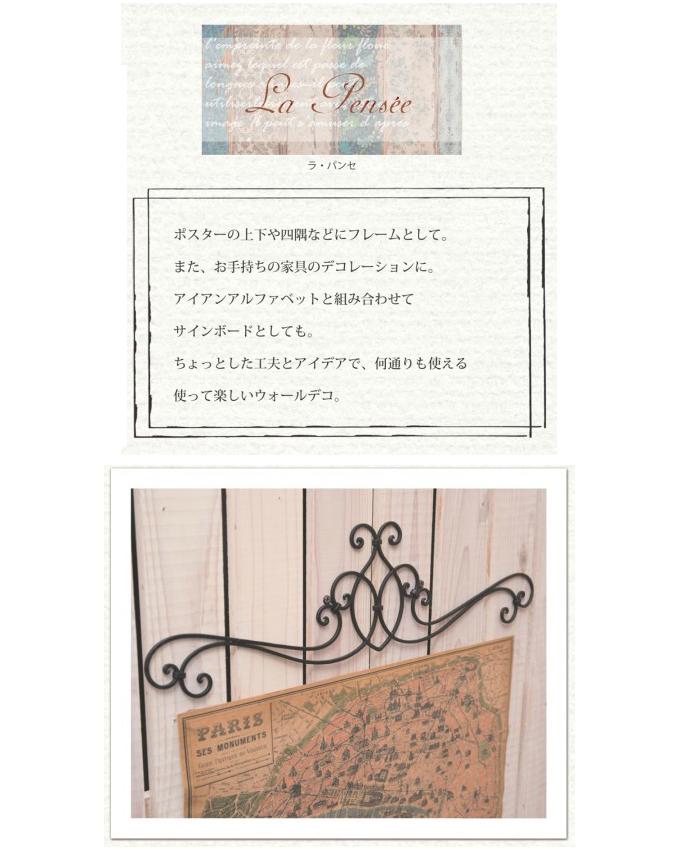 l'empreinte de la fleur floue
aimez lequel est passe de
La Pensée
ラ・パンセ
ポスターの上下や四隅などにフレームとして。
また、お手持ちの家具のデコレーションに。
アイアンアルファベットと組み合わせて
サインボードとしても。
ちょっとした工夫とアイデアで、何通りも使える
使って楽しいウォールデコ。
PARIS
SES MONUMENTS